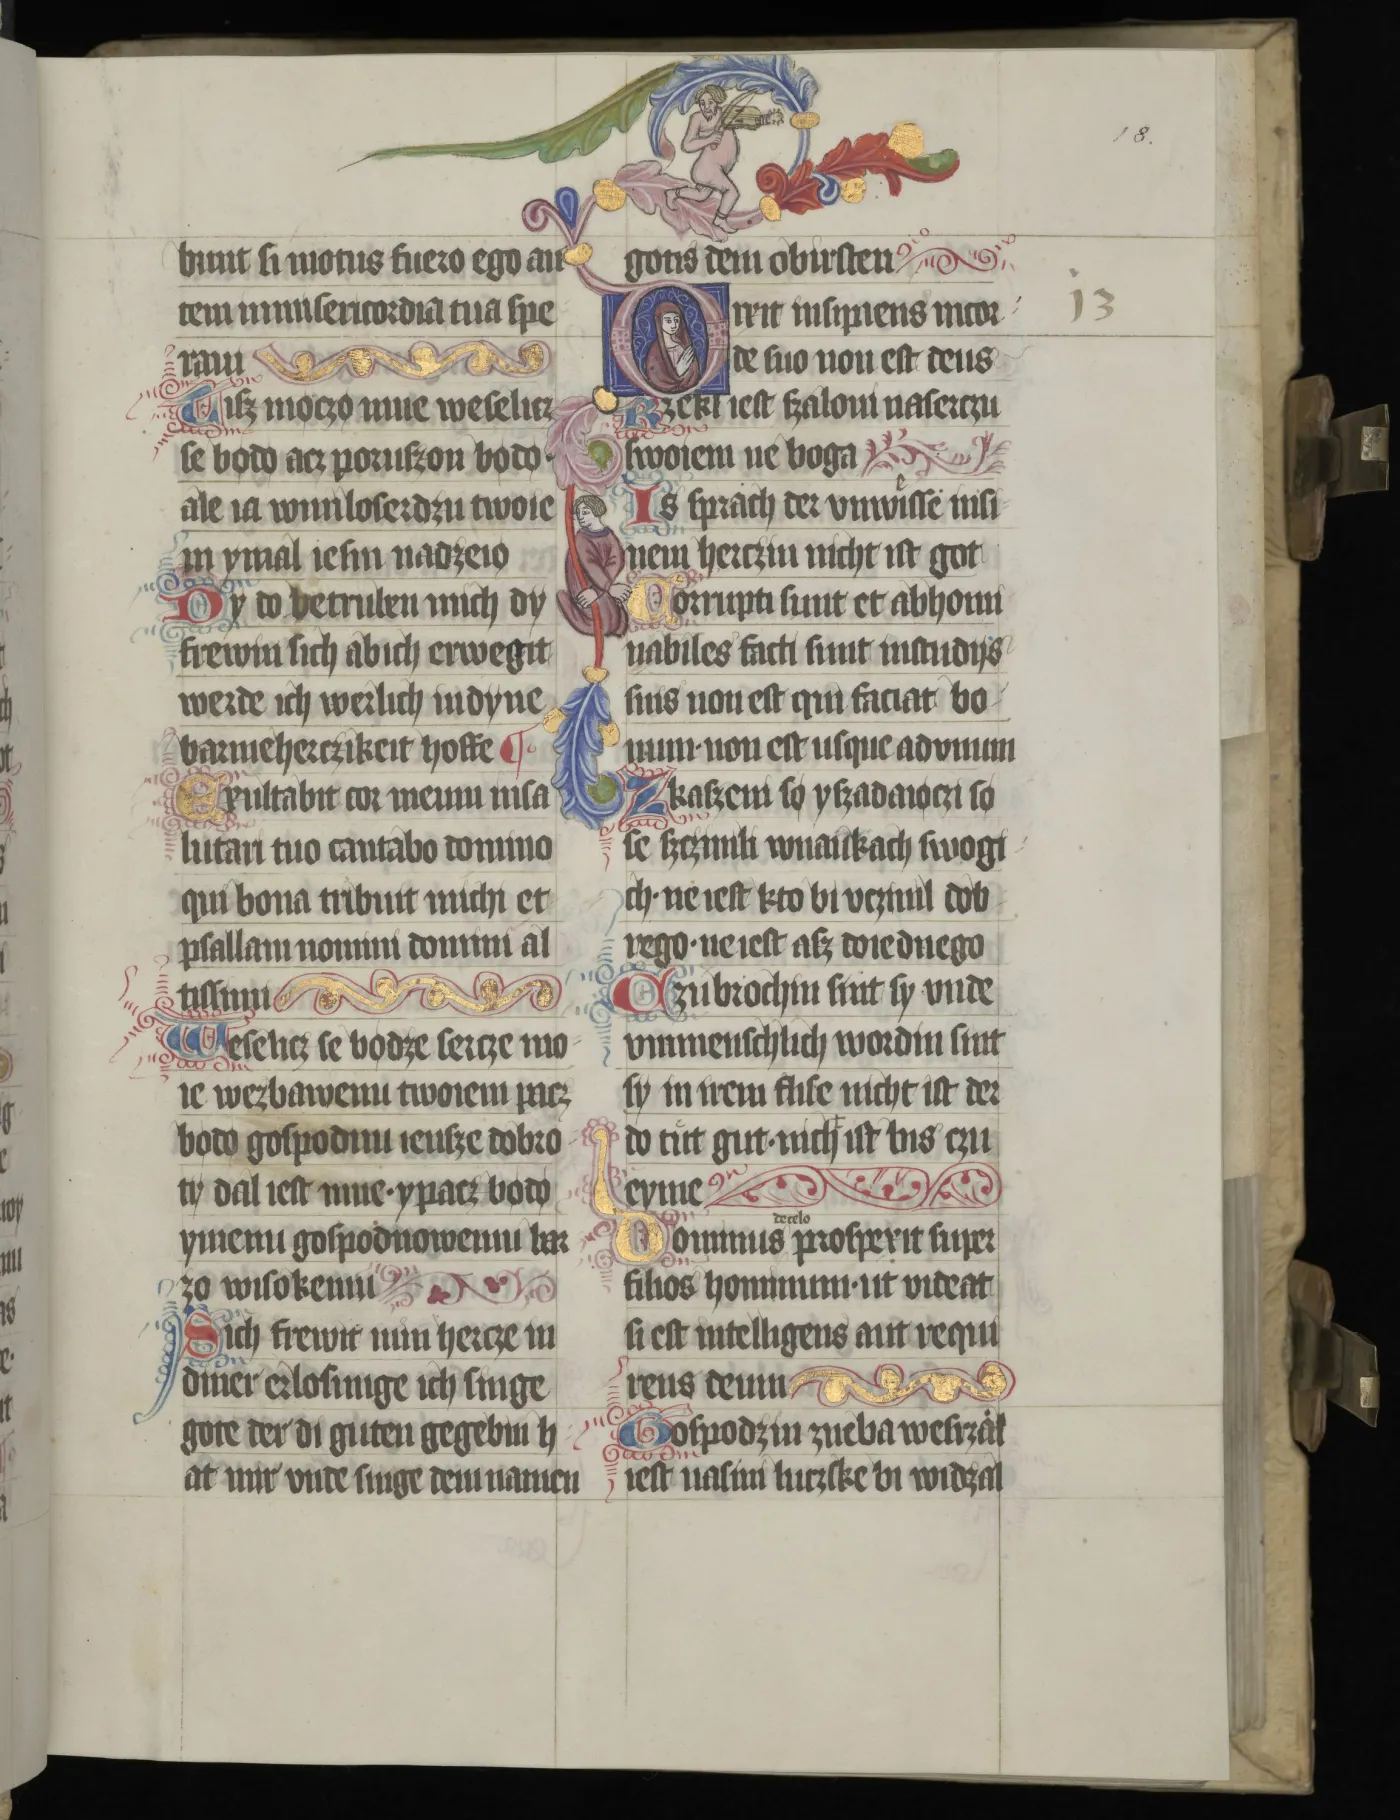 18.
13
bunt si motus fuero ego au
tem in misericordia tua spe
raui
Gisz mόczo mne weselicz
se bodo acz poruszon bodo·
ale ia wmiloserdzu twoie
m ymal iesm nadzeio
Dy do betruben mich dy
frewin sich abich erwegit
werde ich werlich in dyne
barmeherczikeit hoffe
Exultabit cor meum in sa
lutari tuo cantabo domino
qui bona tribuit michi et
psallam nomini domini al
tissimi
Weselicz se bodze sercze mo
ie wezbawenu twoiem pacz
bodo gospodnu ieusze dobro
ty dal iest mne·ypacz bodo
ymenu gospodnowemu bar
zo wisokemu
Sich frewit min hercze in
diner erlosunge ich singe
gote der di guten gegebin h
at mir vnde singe dem namen
gotis dem obirsten
Dixit insipiens in cor
de suo non est deus
Rzekl iest szaloni naserczu
swoiem ne boga
Is sprach der vnwisse in si
nem herczin nicht ist got
Corrupti sunt et abhomi
nabiles facti sunt in studijs
suis non est qui faciat bo
num·non est usque ad vnum
Zkaszeni so yszadaioczi so
se szczinili wnaiskach swogi
ch·ne iest kto bi vczinil dob
rego·ne iest asz doiednego
Czubrochin sint sy vnde
vnmenschlich wordin sint
sy in irem flise nicht ist der
do tut gut·nicht ist bis czu
eyme
de celo
Dominus prospexit super
filios hominum·ut videat
si est intelligens aut requi
rens deum
Gospodzin zneba weszrzal
iest nasini luczske bi widzal